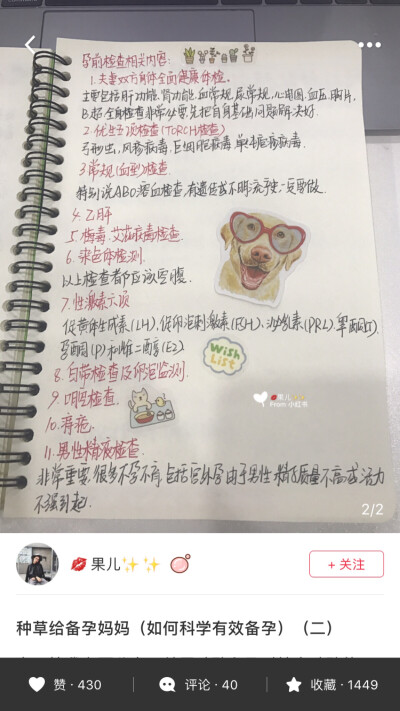 孕前检查相关内容:
1.夫妻双方身体全面健康体检.
主要包括肝功能.肾功能.血常规.尿常规.心电图.血压.胸片.
B超.全面检查非常必要,先把自身基础问题解决好.
2.优生五项检查(TORCH检查)
弓形虫,风疹病毒,巨细胞病毒,单纯疱疹病毒.
3.常规(血型)检查
特别说ABO溶血检查,有遗传或不明流产史一定要做.
4.乙肝
5.梅毒.艾滋病毒检查
6.染色体检测.
以上检查者都应该空腹.
7.性激素六项
促黄体生成素(LH).促卵泡刺激素(FSH).泌乳素(PRL).睾酮(T)
孕酮(P)和雌二醇(E2)
WISH LIST
8.白带检查及卵泡监测
果儿
From 小红书
9.口腔检查.
10.痔疮.
11.男性精液检查.
非常重要.很多不孕不育,包括宫外孕由于男性精子质量不高或活力
不强引起.
2/2
果儿
+ 关注
种草给备孕妈妈（如何科学有效备孕）（二）
赞 · 430
评论 · 40
收藏 · 1449